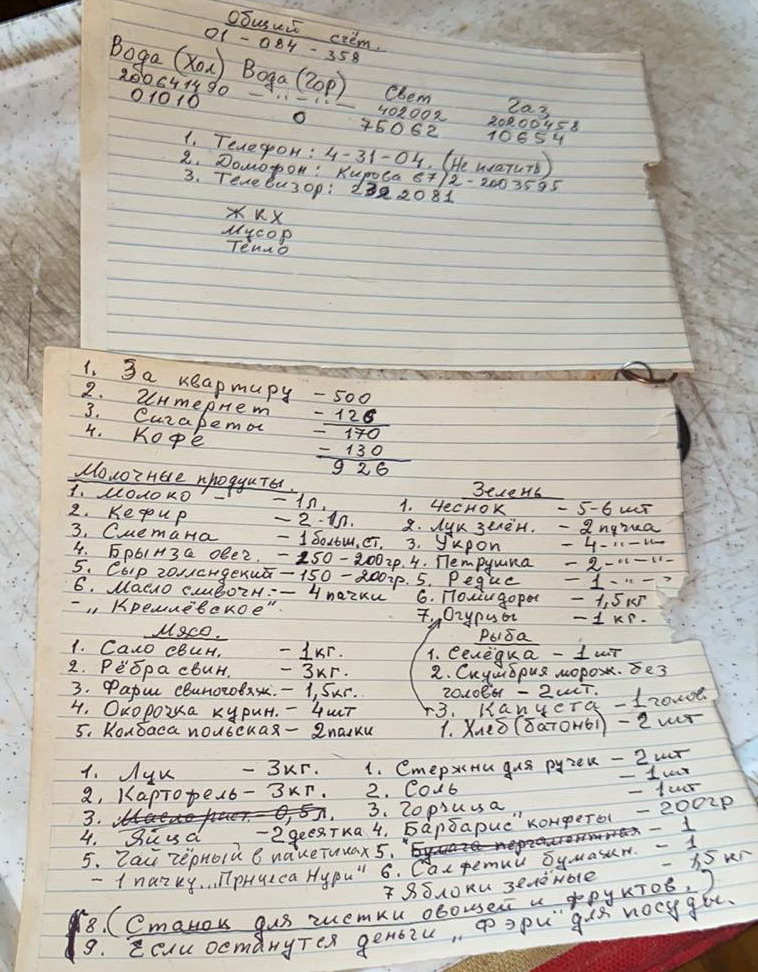 Общий счёт.
01 - 084 - 358
Вода (Хол) Вода (Гор) Свет Газ
200641490 - " - " - 402002 20200458
01010 0 75062 10654
1. Телефон: 4-31-04. (Не платить)
2. Домофон: Кирова 67/2 - 2003595
3. Телевизор: 2322081
ЖКХ
Мусор
Тепло
1. За квартиру - 500
2. Интернет - 126
3. Сигареты - 170
4. Кофе - 130
926
Молочные продукты.
1. Молоко - - 1л.
2. Кефир - 2-1л.
3. Сметана - 1 больш. ст.
4. Брынза овеч. - 250-200гр.
5. Сыр голландский - 150-200гр.
6. Масло сливочн. - 4 пачки
- "Кремлёвское".
Зелень
1. Чеснок - 5-6 шт
2. Лук зелён. - 2 пучка
3. Укроп - 4 - " - " -
4. Петрушка - 2 - " - " -
5. Редис - 1 - " - "
6. Помидоры - 1,5 кг
7. Огурцы - 1 кг.
Мясо.
1. Сало свин. - 1кг.
2. Рёбра свин. - 3кг.
3. Фарш свиноговяж. - 1,5кг.
4. Окорочка курин. - 4шт
5. Колбаса польская - 2 палки
Рыба
1. Селёдка - 1 шт
2. Скумбрия морож. без
головы - 2шт.
3. Капуста - 1 голов.
1. Хлеб (батоны) - 2 шт
1. Лук - 3кг.
2. Картофель - 3кг.
3. Масло раст. - 0,5л.
4. Яйца - 2 десятка
5. Чай чёрный в пакетиках
- 1 пачку "Принцеса Нури"
1. Стержни для ручек - 2 шт
2. Соль - 1 шт
3. Горчица - 1 шт
4. "Барбарис" конфеты - 200гр
5. Бумага пергаментная - 1
6. Салфетки бумажн. - 1
7 Яблоки зелёные - 1,5 кг
8. (Станок для чистки овощей и фруктов.)
9. Если останутся деньги "Фэри" для посуды.